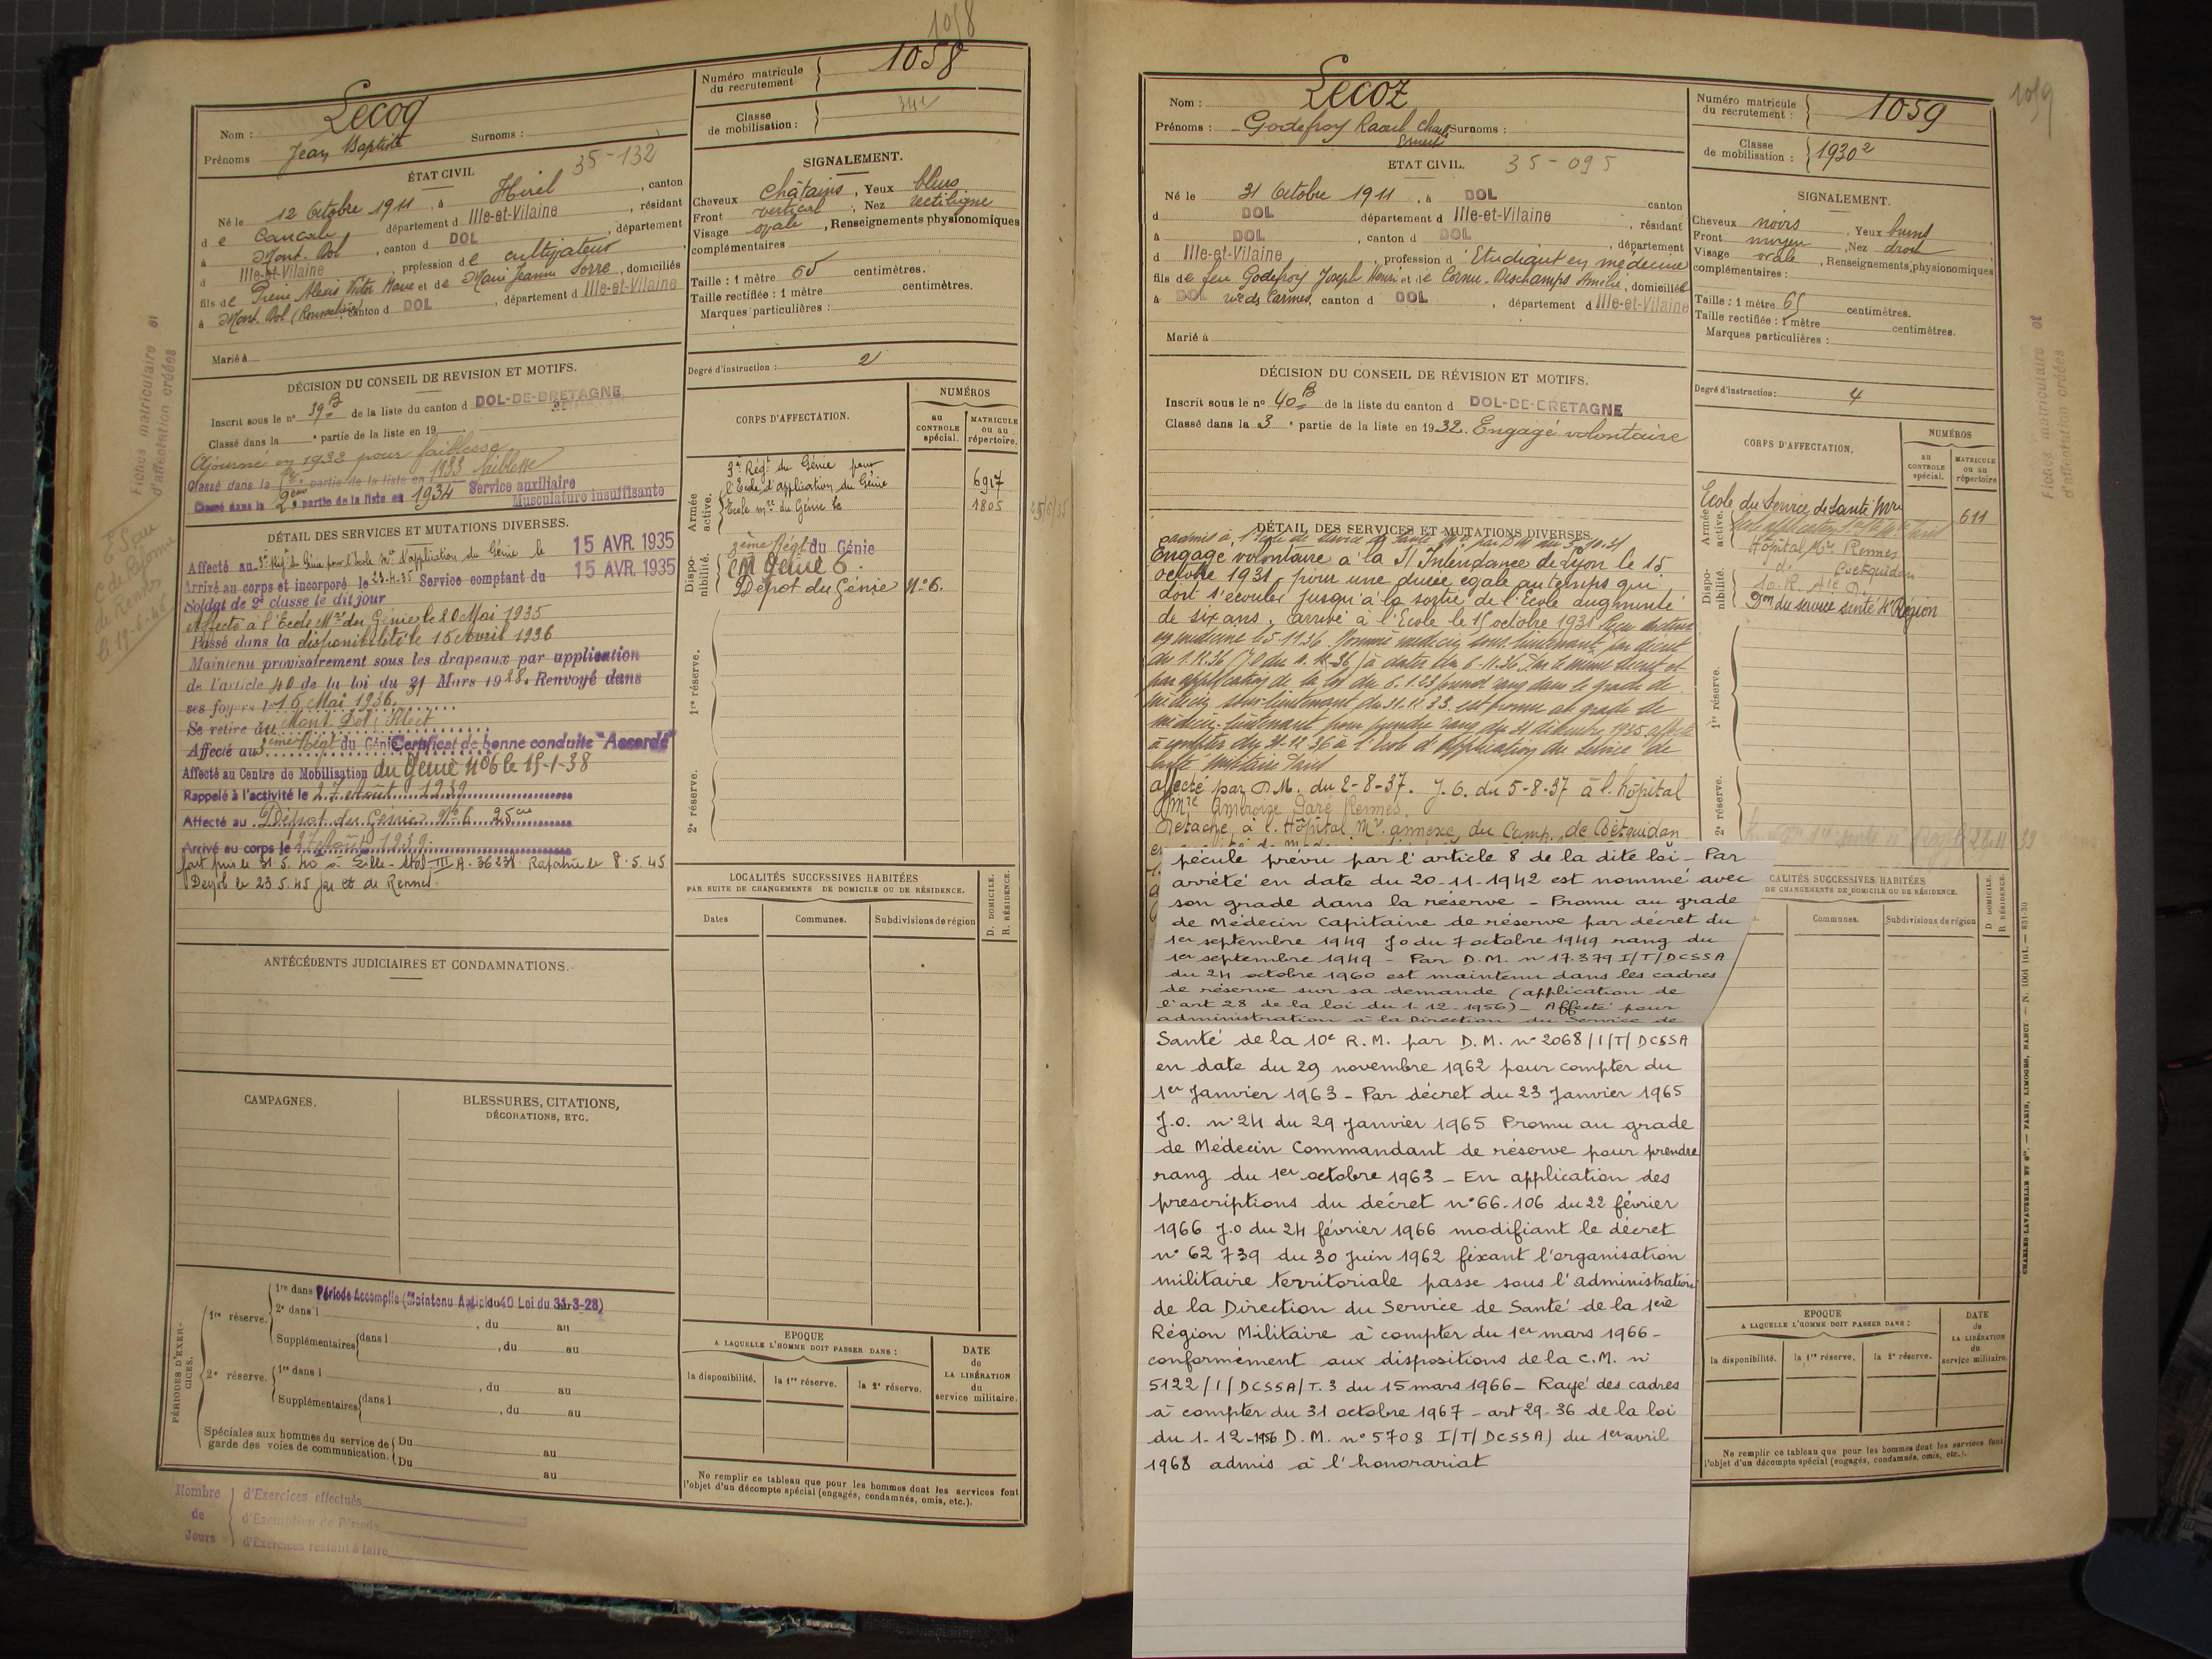 1058
Numéro matricule du recrutement 1058
Classe de mobilisation :
Nom : Lecoq Surnoms :
Prénoms Jean Baptiste
35-132
ÉTAT CIVIL
Né le 12 Octobre 1911, à Hirel, canton
de Cancale département d Ille-et-Vilaine, résidant
à Mont. Dol, canton d DOL, département
d Ille-et-Vilaine, profession de cultivateur
fils de Pierre Alexis Victor Marie et de Marie Jeanne Sorre, domiciliés
à Mont. Dol, canton d DOL, département d Ille-et-Vilaine
Marié à
SIGNALEMENT.
Cheveux châtains, Yeux bleus
Front vertical, Nez rectiligne
Visage ovale, Renseignements physionomiques
complémentaires
Taille : 1 mètre 65 centimètres.
Taille rectifiée : 1 mètre centimètres.
Marques particulières :
Degré d'instruction : 2
DÉCISION DU CONSEIL DE REVISION ET MOTIFS.
Inscrit sous le n° 39 B de la liste du canton d DOL-DE-BRETAGNE
Classé dans la e partie de la liste en 19
Ajourné en 1932 pour faiblesse
Classé dans la partie de la liste en 1933 faiblesse
Classé dans la 2eme partie de la liste en 1934 Service auxiliaire
Musculature insuffisante
DÉTAIL DES SERVICES ET MUTATIONS DIVERSES.
Affecté au 3e Régt du Génie pour l'école Mre d'application du Génie le 15 AVR. 1935
Arrivé au corps et incorporé le 23-4-35 Service comptant du 15 AVR. 1935
Soldat de 2e classe le dit jour
Affecté à l'Ecole Mre du Génie le 20 Mai 1935
Passé dans la disponibilité le 15 Avril 1936
Maintenu provisoirement sous les drapeaux par application
de l'article 40 de la loi du 31 Mars 1928. Renvoyé dans
ses foyers le 16 Mai 1936.
Se retire au Mont Dol
Affecté au 3ème Régt du Génie Certificat de bonne conduite "Accordé"
Affecté au Centre de Mobilisation du Génie N°6 le 15-1-38
Rappelé à l'activité le 27 Août 1939
Affecté au Dépôt du Génie N°6
Arrivé au corps le 27 Août 1939
fait pris le 31.5.40 à Lille - Stal III A. 36231. Rapatrié le 8.5.45
CORPS D'AFFECTATION.
NUMÉROS
au CONTROLE spécial.
MATRICULE ou au répertoire.
Armée active.
3e Régt du Génie pour
l'Ecole d'application du Génie 6917
Ecole mre du Génie 1805
Disponibilité.
3ème Régt du Génie
CM Génie 6.
Dépôt du Génie N°6.
1re réserve.
2e réserve.
ANTÉCÉDENTS JUDICIAIRES ET CONDAMNATIONS.
LOCALITÉS SUCCESSIVES HABITÉES
PAR SUITE DE CHANGEMENTS DE DOMICILE OU DE RÉSIDENCE.
Dates Communes. Subdivisions de région D. DOMICILE. R. RÉSIDENCE.
CAMPAGNES.
BLESSURES, CITATIONS,
DÉCORATIONS, ETC.
PÉRIODES D'EXERCICES.
1re réserve. 1re dans Période Accomplie (Maintenu Article 40 Loi du 31-3-28)
2e dans l , du au
Supplémentaires dans l , du au
2e réserve. 1re dans l , du au
Supplémentaires dans l , du au
Spéciales aux hommes du service de garde des voies de communication. Du au
Du au
EPOQUE
A LAQUELLE L'HOMME DOIT PASSER DANS :
la disponibilité. la 1re réserve. la 2e réserve.
DATE de LA LIBÉRATION du service militaire.
Ne remplir ce tableau que pour les hommes dont les services font
l'objet d'un décompte spécial (engagés, condamnés, omis, etc.).
Nombre de Jours
d'Exercices effectués
d'Exemption de Période
d'Exercices restant à faire
Fiches matriculaire et
d'affectation créées
C de Réforme
de Rennes
le 19-6-45
1059
Nom : Lecoz
Prénoms : Godefroy Raoul Charles Ernest Surnoms :
Numéro matricule du recrutement : 1059
Classe de mobilisation : 1930²
ETAT CIVIL. 35-095
Né le 31 Octobre 1911, à DOL canton
d DOL département d Ille-et-Vilaine, résidant
à DOL, canton d DOL, département
d Ille-et-Vilaine, profession d'Etudiant en médecine
fils de feu Godefroy Joseph Henri et de Cornu-Deschamps Amélie, domiciliés
à DOL rue des Carmes, canton d DOL, département d Ille-et-Vilaine
Marié à
SIGNALEMENT.
Cheveux noirs, Yeux bruns
Front moyen, Nez droit
Visage ovale, Renseignements physionomiques
complémentaires :
Taille : 1 mètre 65 centimètres.
Taille rectifiée : 1 mètre centimètres.
Marques particulières :
Degré d'instruction : 4
DÉCISION DU CONSEIL DE RÉVISION ET MOTIFS.
Inscrit sous le n° 40 B de la liste du canton d DOL-DE-BRETAGNE
Classé dans la 3e partie de la liste en 1932. Engagé volontaire
DÉTAIL DES SERVICES ET MUTATIONS DIVERSES.
Engagé volontaire à la S/Intendance de Lyon le 15
octobre 1931, pour une durée égale au temps qui
doit s'écouler jusqu'à la sortie de l'Ecole augmenté
de six ans. Arrivé à l'Ecole le 15 octobre 1931 Reçu docteur
en médecine le 5-11-36. Nommé médecin sous-lieutenant par décret
du 1.12.36 à dater du 6-11-36 Par le même décret et
par application de la loi du 6.1.23 prend rang dans le grade de
médecin sous-lieutenant du 31.12.33. est promu au grade de
médecin-lieutenant pour prendre rang du 31 décembre 1935 affecté
à compter du 31-12-36 à l'Ecole d'Application du Service de
Santé Militaire Paris
affecté par D.M. du 2-8-37. J.O. du 5-8-37 à l'hôpital
Mre Ambroise Paré Rennes.
Détaché à l'Hôpital Mre annexe du Camp de Coëtquidan
CORPS D'AFFECTATION.
NUMÉROS
au CONTROLE spécial.
MATRICULE ou au répertoire
Armée active.
Ecole du Service de Santé Mre 611
Hôpital Mre Rennes
d° Coëtquidan
Disponibilité.
Don du service santé 4e Région
1re réserve.
2e réserve.
pécule prévu par l'article 8 de la dite loi - Par
arrêté en date du 20-11-1942 est nommé avec
son grade dans la réserve - Promu au grade
de Médecin Capitaine de réserve par décret du
1er septembre 1949 J.O du 7 octobre 1949 rang du
1er septembre 1949 - Par D.M. n° 17.379 I/T/DCSSA
du 24 octobre 1960 est maintenu dans les cadres
de réserve sur sa demande (application de
l'art 28 de la loi du 1-12-1956) - Affecté pour
administration à la Direction du Service de
Santé de la 10e R.M. par D.M. n° 2068/I/T/DCSSA
en date du 29 novembre 1962 pour compter du
1er Janvier 1963 - Par décret du 23 Janvier 1965
J.O. n° 24 du 29 Janvier 1965 Promu au grade
de Médecin Commandant de réserve pour prendre
rang du 1er octobre 1963 - En application des
prescriptions du décret n° 66-106 du 22 février
1966 J.O du 24 février 1966 modifiant le décret
n° 62 739 du 30 Juin 1962 fixant l'organisation
militaire territoriale passe sous l'administration
de la Direction du Service de Santé de la 1ere
Région Militaire à compter du 1er mars 1966 -
conformément aux dispositions de la C.M. n°
5122/I/DCSSA/T.3 du 15 mars 1966 - Rayé des cadres
à compter du 31 octobre 1967 - art 29-36 de la loi
du 1-12-1956 D.M. n° 5708 I/T/DCSSA) du 1er avril
1968 admis à l'honorariat
CALITÉS SUCCESSIVES HABITÉES
DE CHANGEMENTS DE DOMICILE OU DE RÉSIDENCE.
Communes. Subdivisions de région D. DOMICILE. R. RÉSIDENCE.
EPOQUE
A LAQUELLE L'HOMME DOIT PASSER DANS :
la disponibilité. la 1re réserve. la 2e réserve.
DATE de LA LIBÉRATION du service militaire.
Ne remplir ce tableau que pour les hommes dont les services font
l'objet d'un décompte spécial (engagés, condamnés, omis, etc.).
Fiches matriculaire et
d'affectation créées
CHARLES-LAVAUZELLE ET Cie. — PARIS, LIMOGES, NANCY